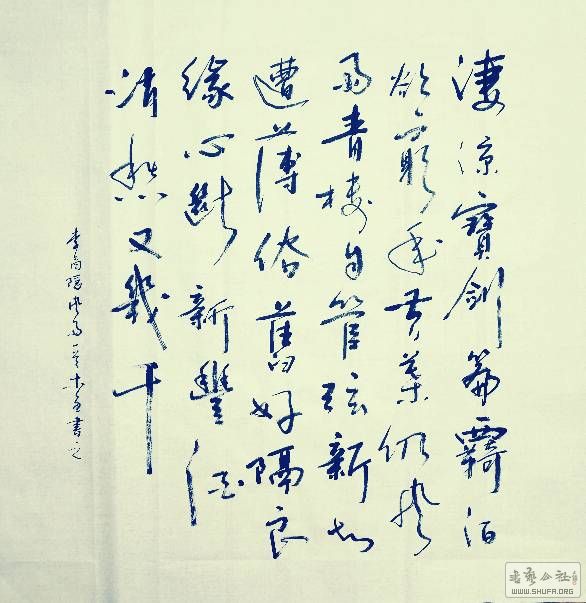 淒涼寶劍篇覊泊
欲窮年黄葉仍風
雨青樓自管弦新知
遭薄俗舊好隔良
緣心斷新豐酒
消愁又幾千
李商隱風雨 書之
书藝公社
WWW.SHUFA.ORG